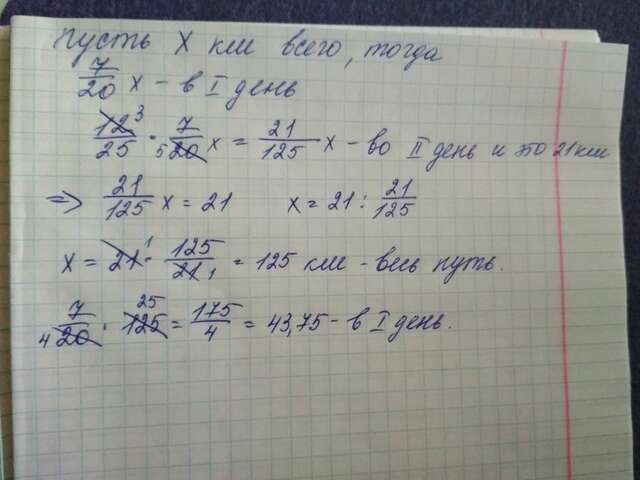 пусть x км всего, тогда
7/20 x - в I день
12 3/25 · 7/5 20 x = 21/125 x - во II день и это 21 км
=> 21/125 x = 21 x = 21 : 21/125
x = 21 1 · 125/21 1 = 125 км - весь путь.
7/4 20 · 25 125 = 175/4 = 43,75 - в I день.